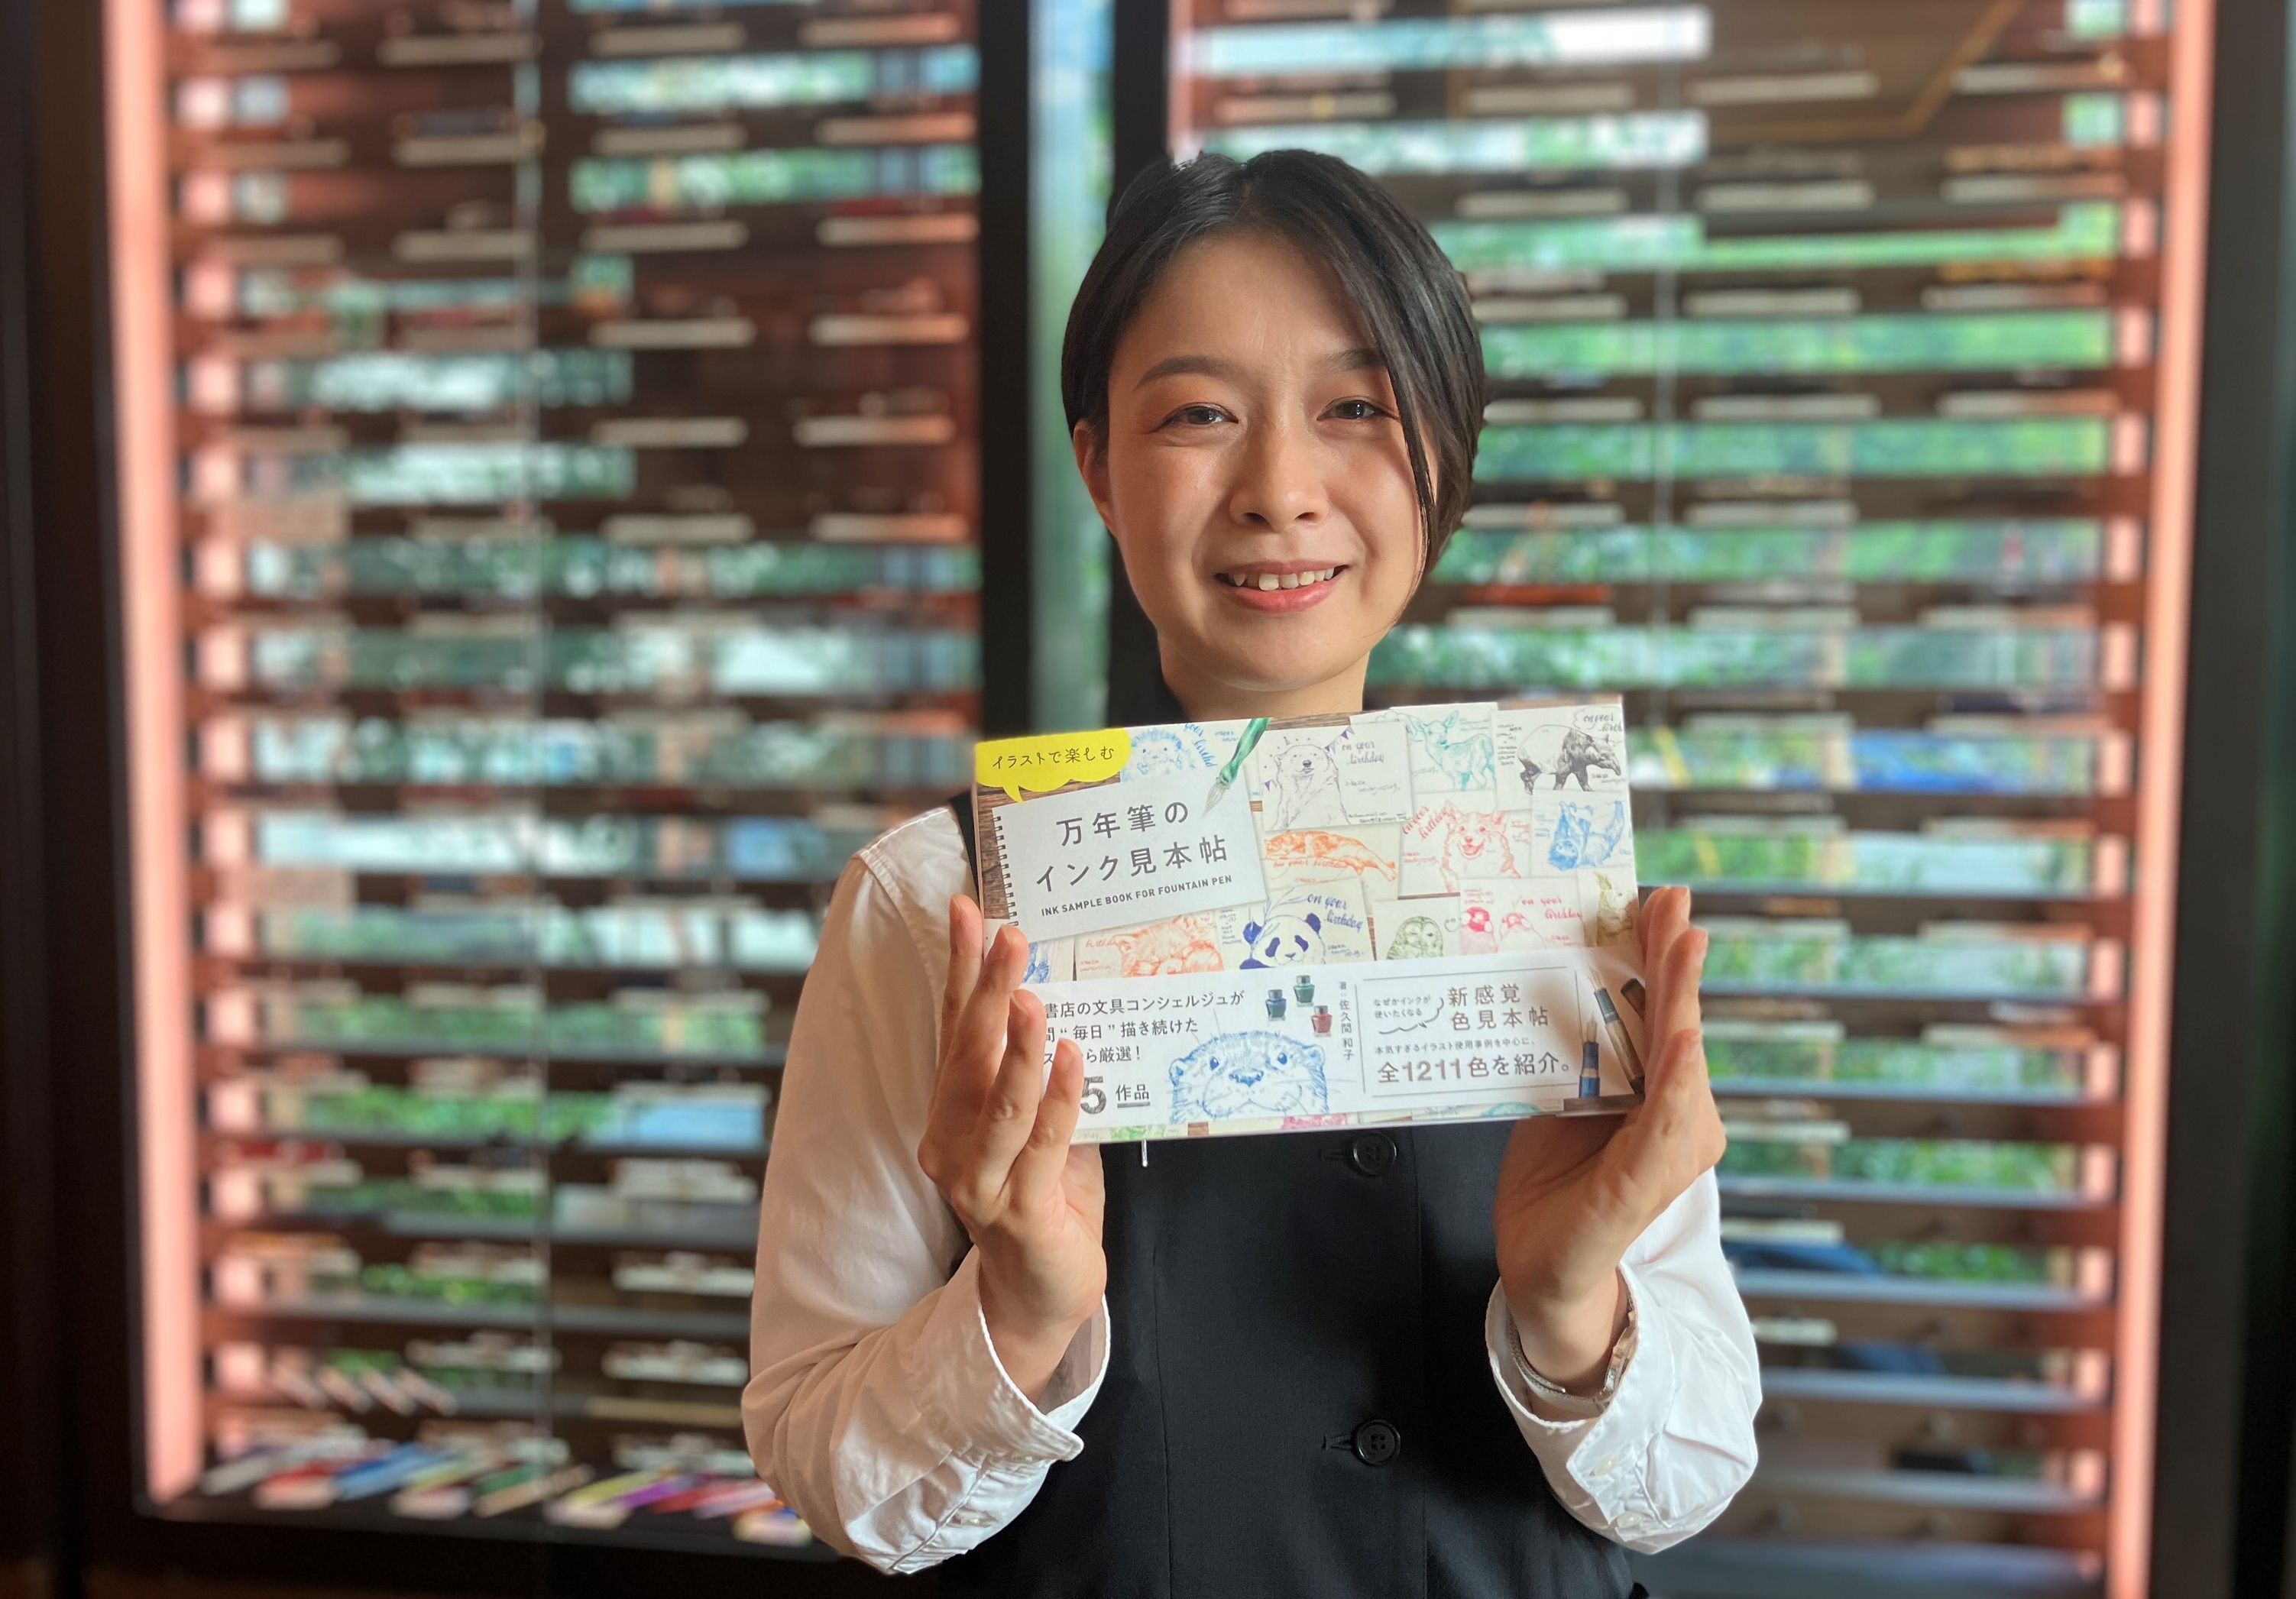 イラストで楽しむ
万年筆の
インク見本帖
INK SAMPLE BOOK FOR FOUNTAIN PEN
on your
birthday
on your
birthday
on your
birthday
書店の文具コンシェルジュが
間“毎日”描き続けた
ら厳選!
5 作品
著:佐久間和子
なぜかインクが
使いたくなる
新感覚
色見本帖
本気すぎるイラスト使用事例を中心に、
全1211色を紹介。